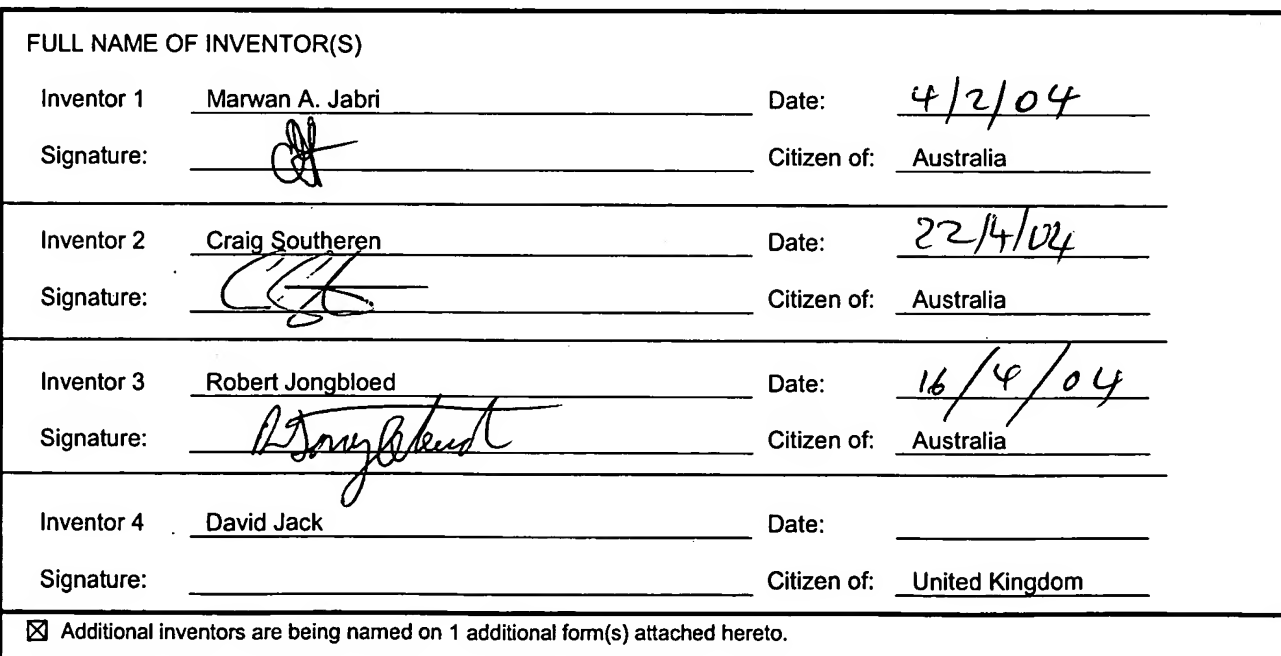 FULL NAME OF INVENTOR(S)
Inventor 1 Marwan A. Jabri Date: 4/2/04
Signature: Citizen of: Australia
Inventor 2 Craig Southeren Date: 22/4/04
Signature: Citizen of: Australia
Inventor 3 Robert Jongbloed Date: 16/4/04
Signature: Citizen of: Australia
Inventor 4 David Jack Date:
Signature: Citizen of: United Kingdom
☒ Additional inventors are being named on 1 additional form(s) attached hereto.